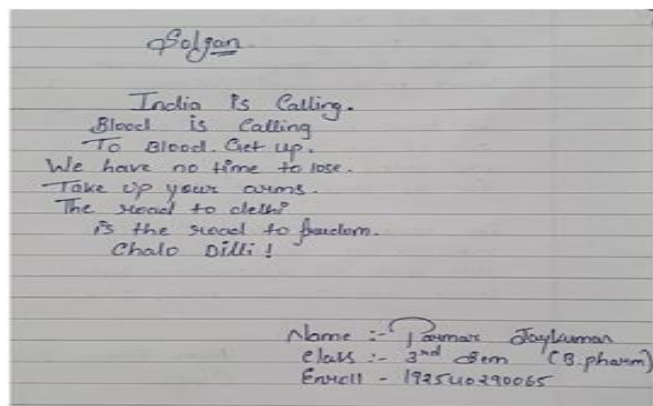 Soljan
India is Calling.
Blood is Calling
To Blood. Get up.
We have no time to lose.
Take up your arms.
The road to delhi
is the road to freedom.
Chalo Dilli!
Name :- Parmar Jaykumar
Class :- 3rd Sem (B.pharm)
Enroll - 192540290065